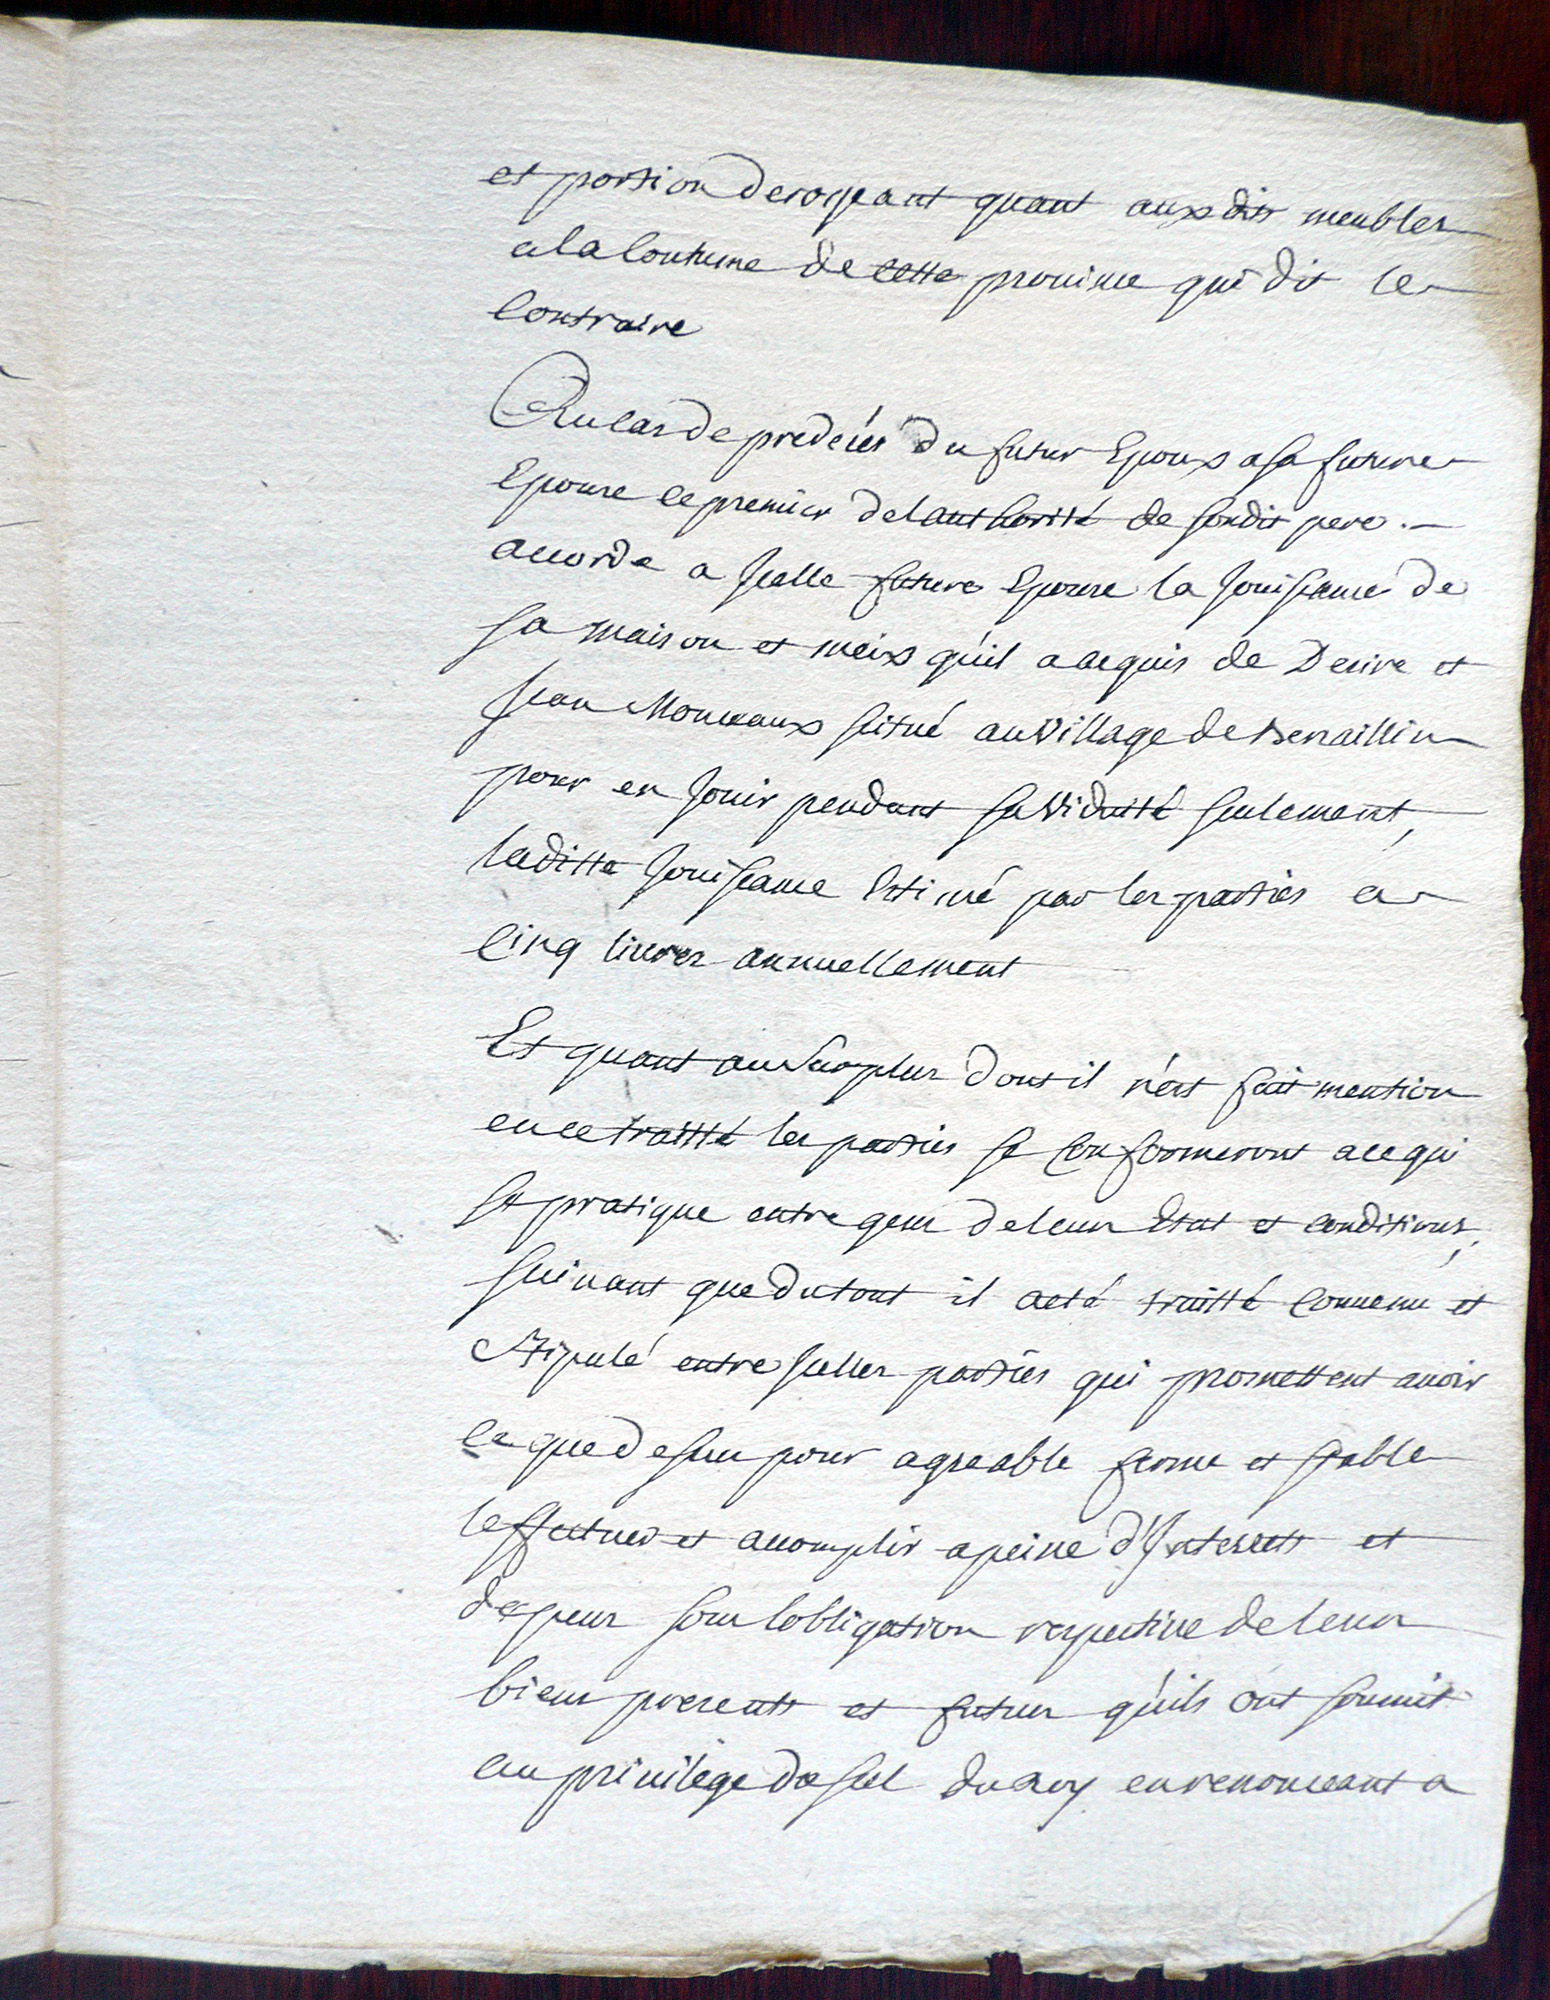 et portion derogeant quant auxdits meubles
a la Coutume de cette province qui dit le
Contraire
Au cas de predécés du futur Epoux a sa future
Epouse le premier de l'authorité de sondit pere
accorde a jcelle future Epouse la jouissance de
sa maison et meix qu'il a acquis de Desire et
jean Monceaux scitué au Village de
pour en jouir pendant sa Viduité seulement,
laditte jouissance Estimé par les parties a
Cinq livres annuellement
Et quant au Surplus dont il n'est fait mention
en ce traitté les parties se Conformeront a ce qui
se pratique entre gens de leurs Etat et conditions,
suivant que du tout il a eté traitté Convenu et
Stipulé entre jcelles parties qui promettent avoir
ce que dessus pour agreable ferme et stable
l'effectuer et accomplir a peine d'Interests et
depens sous l'obligation respective de leurs
biens presents et futurs qu'ils ont soumit
au privilége du scel du Roy en renonceant a